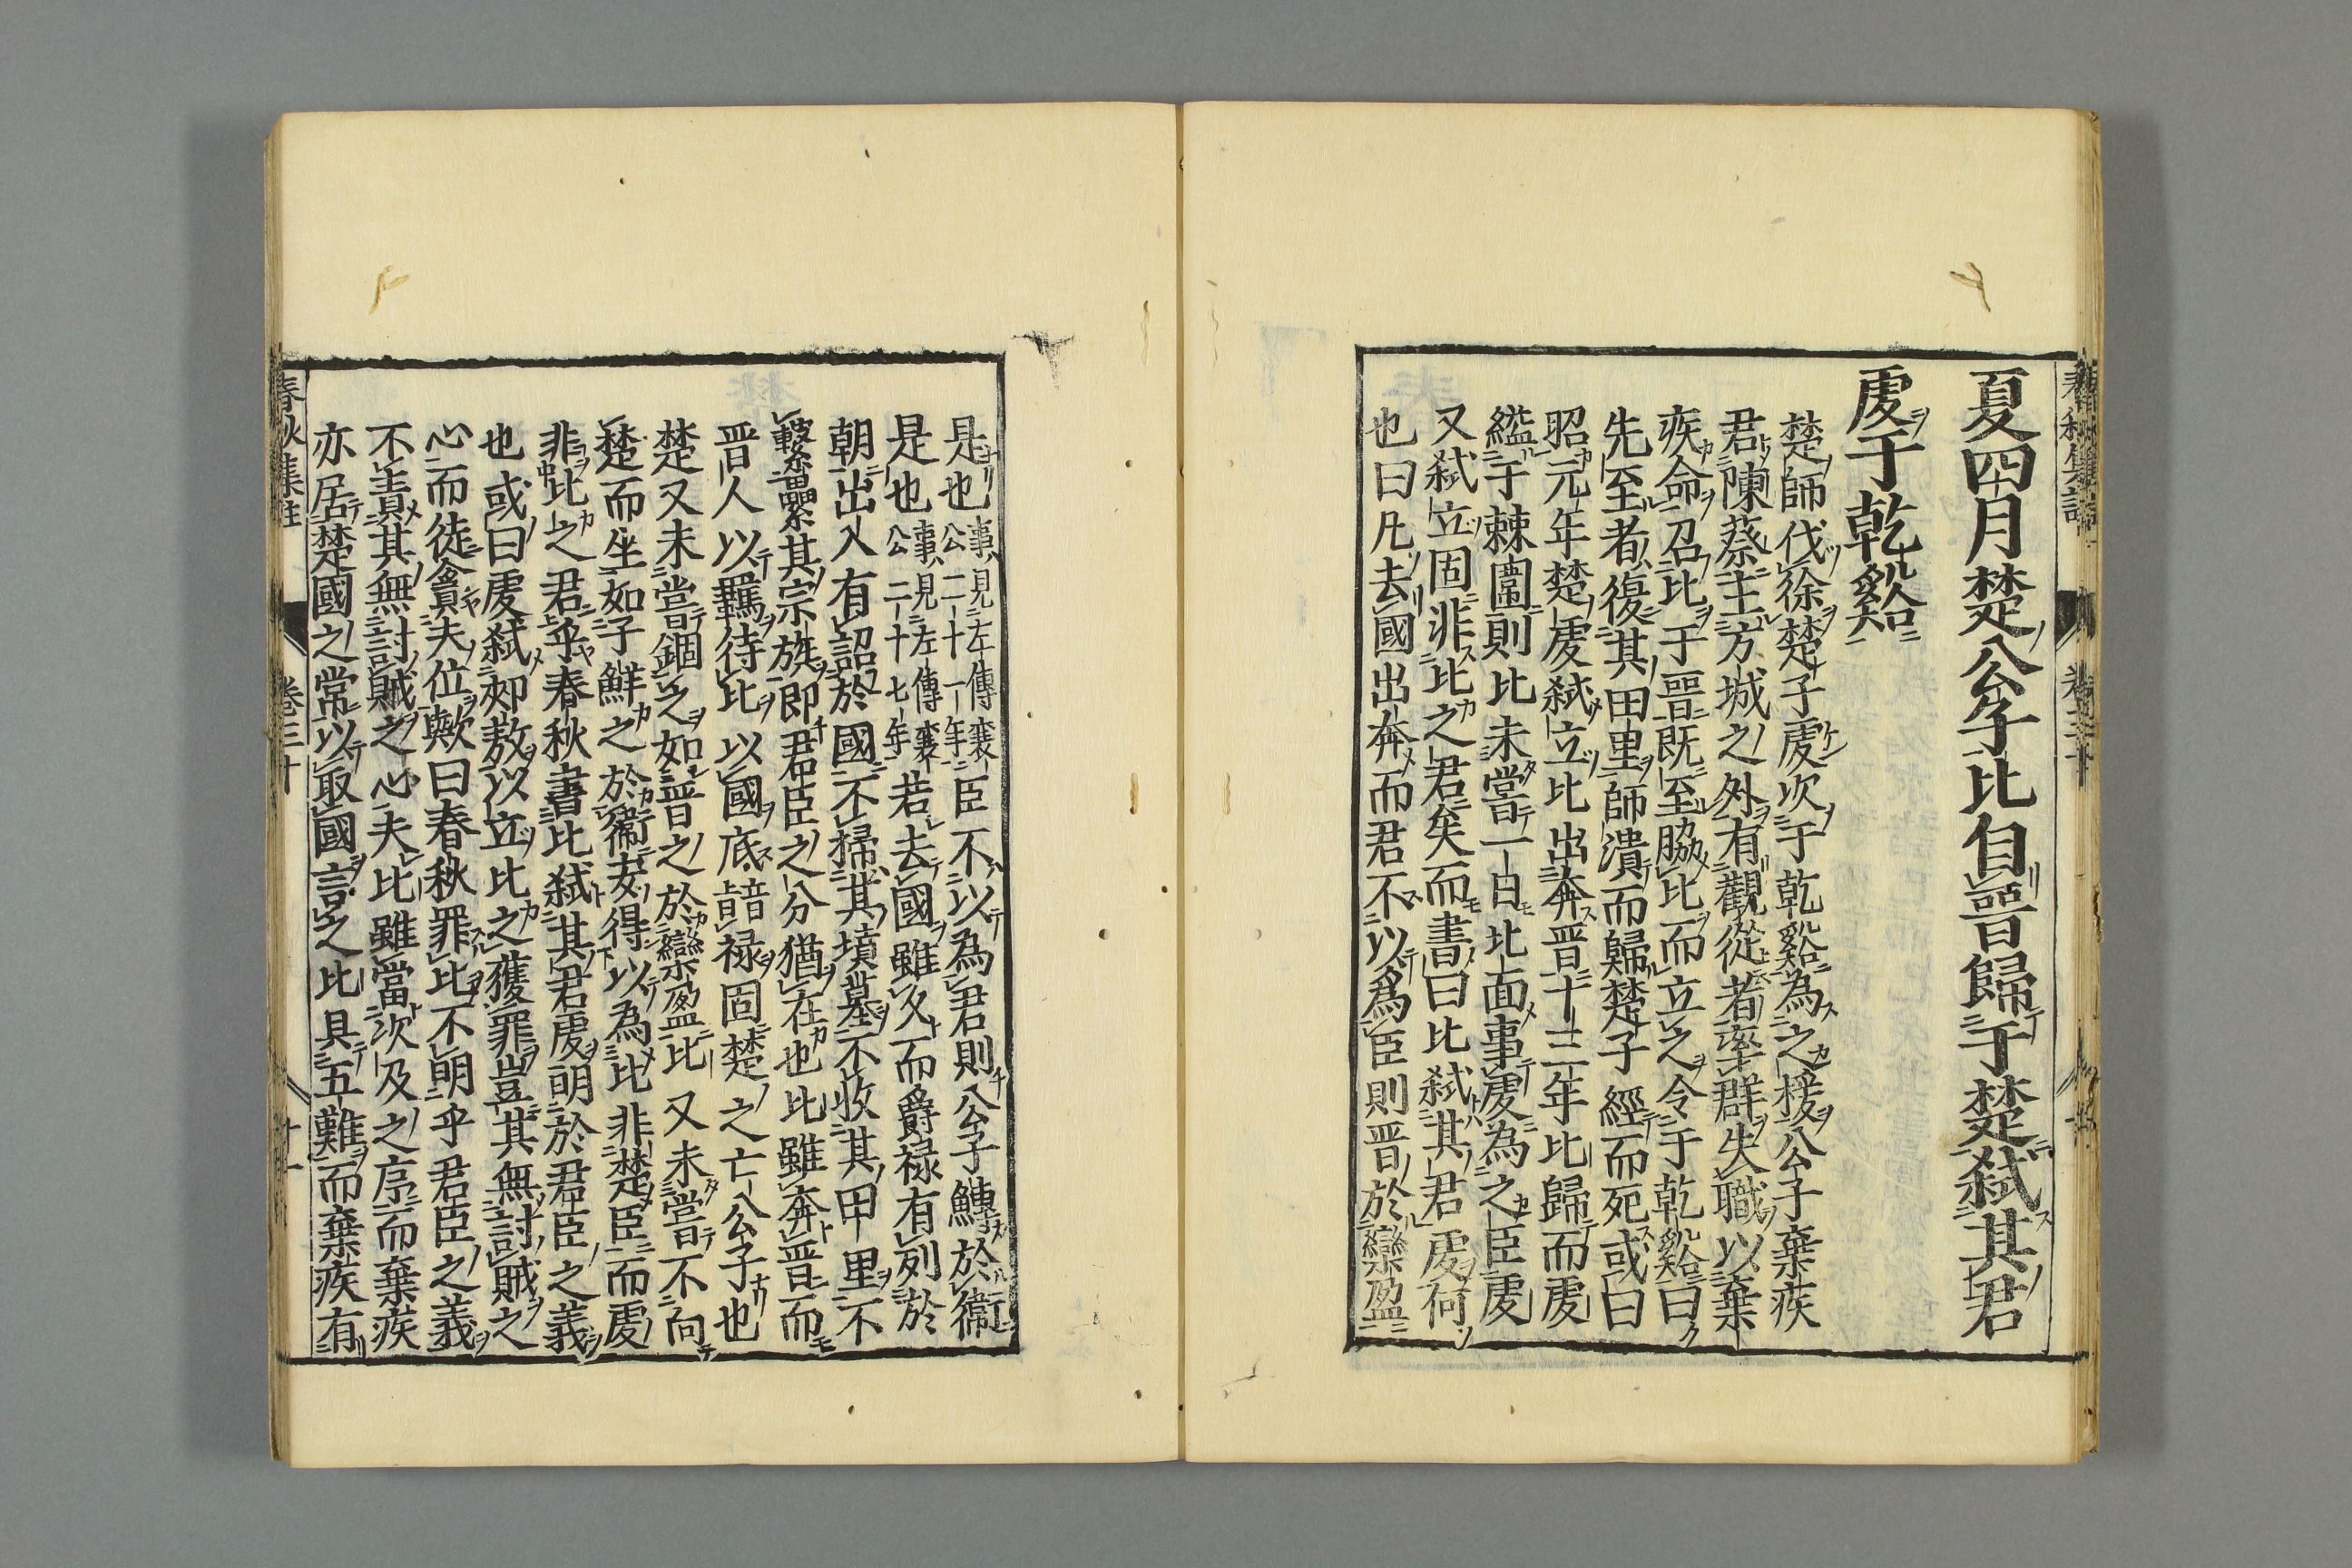 夏四月楚公子比自晉歸于楚弑其君
虔于乾谿
楚師伐徐楚子虔次于乾谿為之援公子棄疾
君陳蔡主方城之外有觀從者率群失職以棄
疾命召比于晉既至脇比而立之令于乾谿曰
先至者復其田里師潰而歸楚子經而死或曰
昭元年楚虔弑立比出奔晋十三年比歸而虔
縊于棘圍則比未嘗一日北面事虔為之臣虔
又弑立固非比之君矣而書曰比弑其君虔何
也曰凡去國出奔而君不以爲臣則晋於欒盈
是也事見左傳襄公二十一年臣不以為君則公子鱄於衞
是也事見左傳襄公二十七年若去國雖久而爵禄有列於
朝出入有詔於國不掃其墳墓不收其田里不
繫纍其宗族即君臣之分猶在也比雖奔晋而
晋人以羈待比以國底禄固楚之亡公子也
楚又未嘗錮之如晋之於欒盈比又未嘗不向
楚而坐如子鮮之於衞安得以為比非楚臣而虔
非比之君乎春秋書比弑其君虔明於君臣之義
也或曰虔弑郟敖以立比之獲罪豈其無討賊之
心而徒貪夫位歟曰春秋罪比不明乎君臣之義
不責其無討賊之心夫比雖當次及之序而棄疾
亦居楚國之常以取國言之比具五難而棄疾有
春秋集註
卷三十
十一